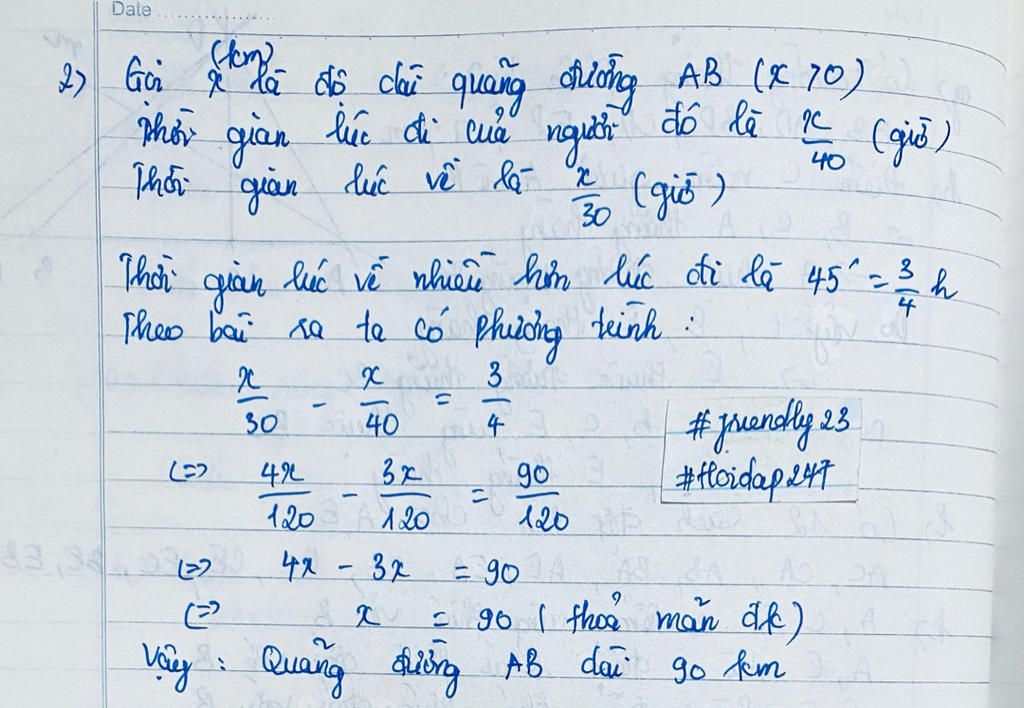 Date
(km)
2) Gọi x là độ dài quãng đường AB (x > 0)
Thời gian lúc đi của người đó là x/40 (giờ)
Thời gian lúc về là x/30 (giờ)
Thời gian lúc về nhiều hơn lúc đi là 45' = 3/4 h
Theo bài ra ta có phương trình :
x/30 - x/40 = 3/4
#friendly23
(=> 4x/120 - 3x/120 = 90/120
#Hoidap247
(=> 4x - 3x = 90
(=> x = 90 (thoả mãn đk)
Vậy : Quãng đường AB dài 90 km